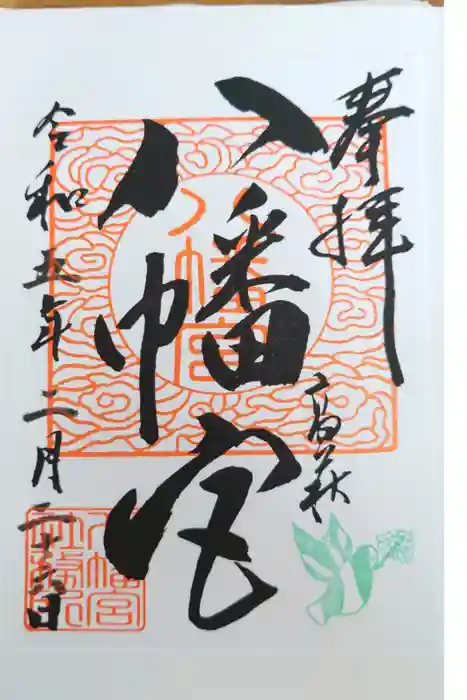 奉拝
髙萩
八幡宮
令和五年二月二十六日
八幡宮